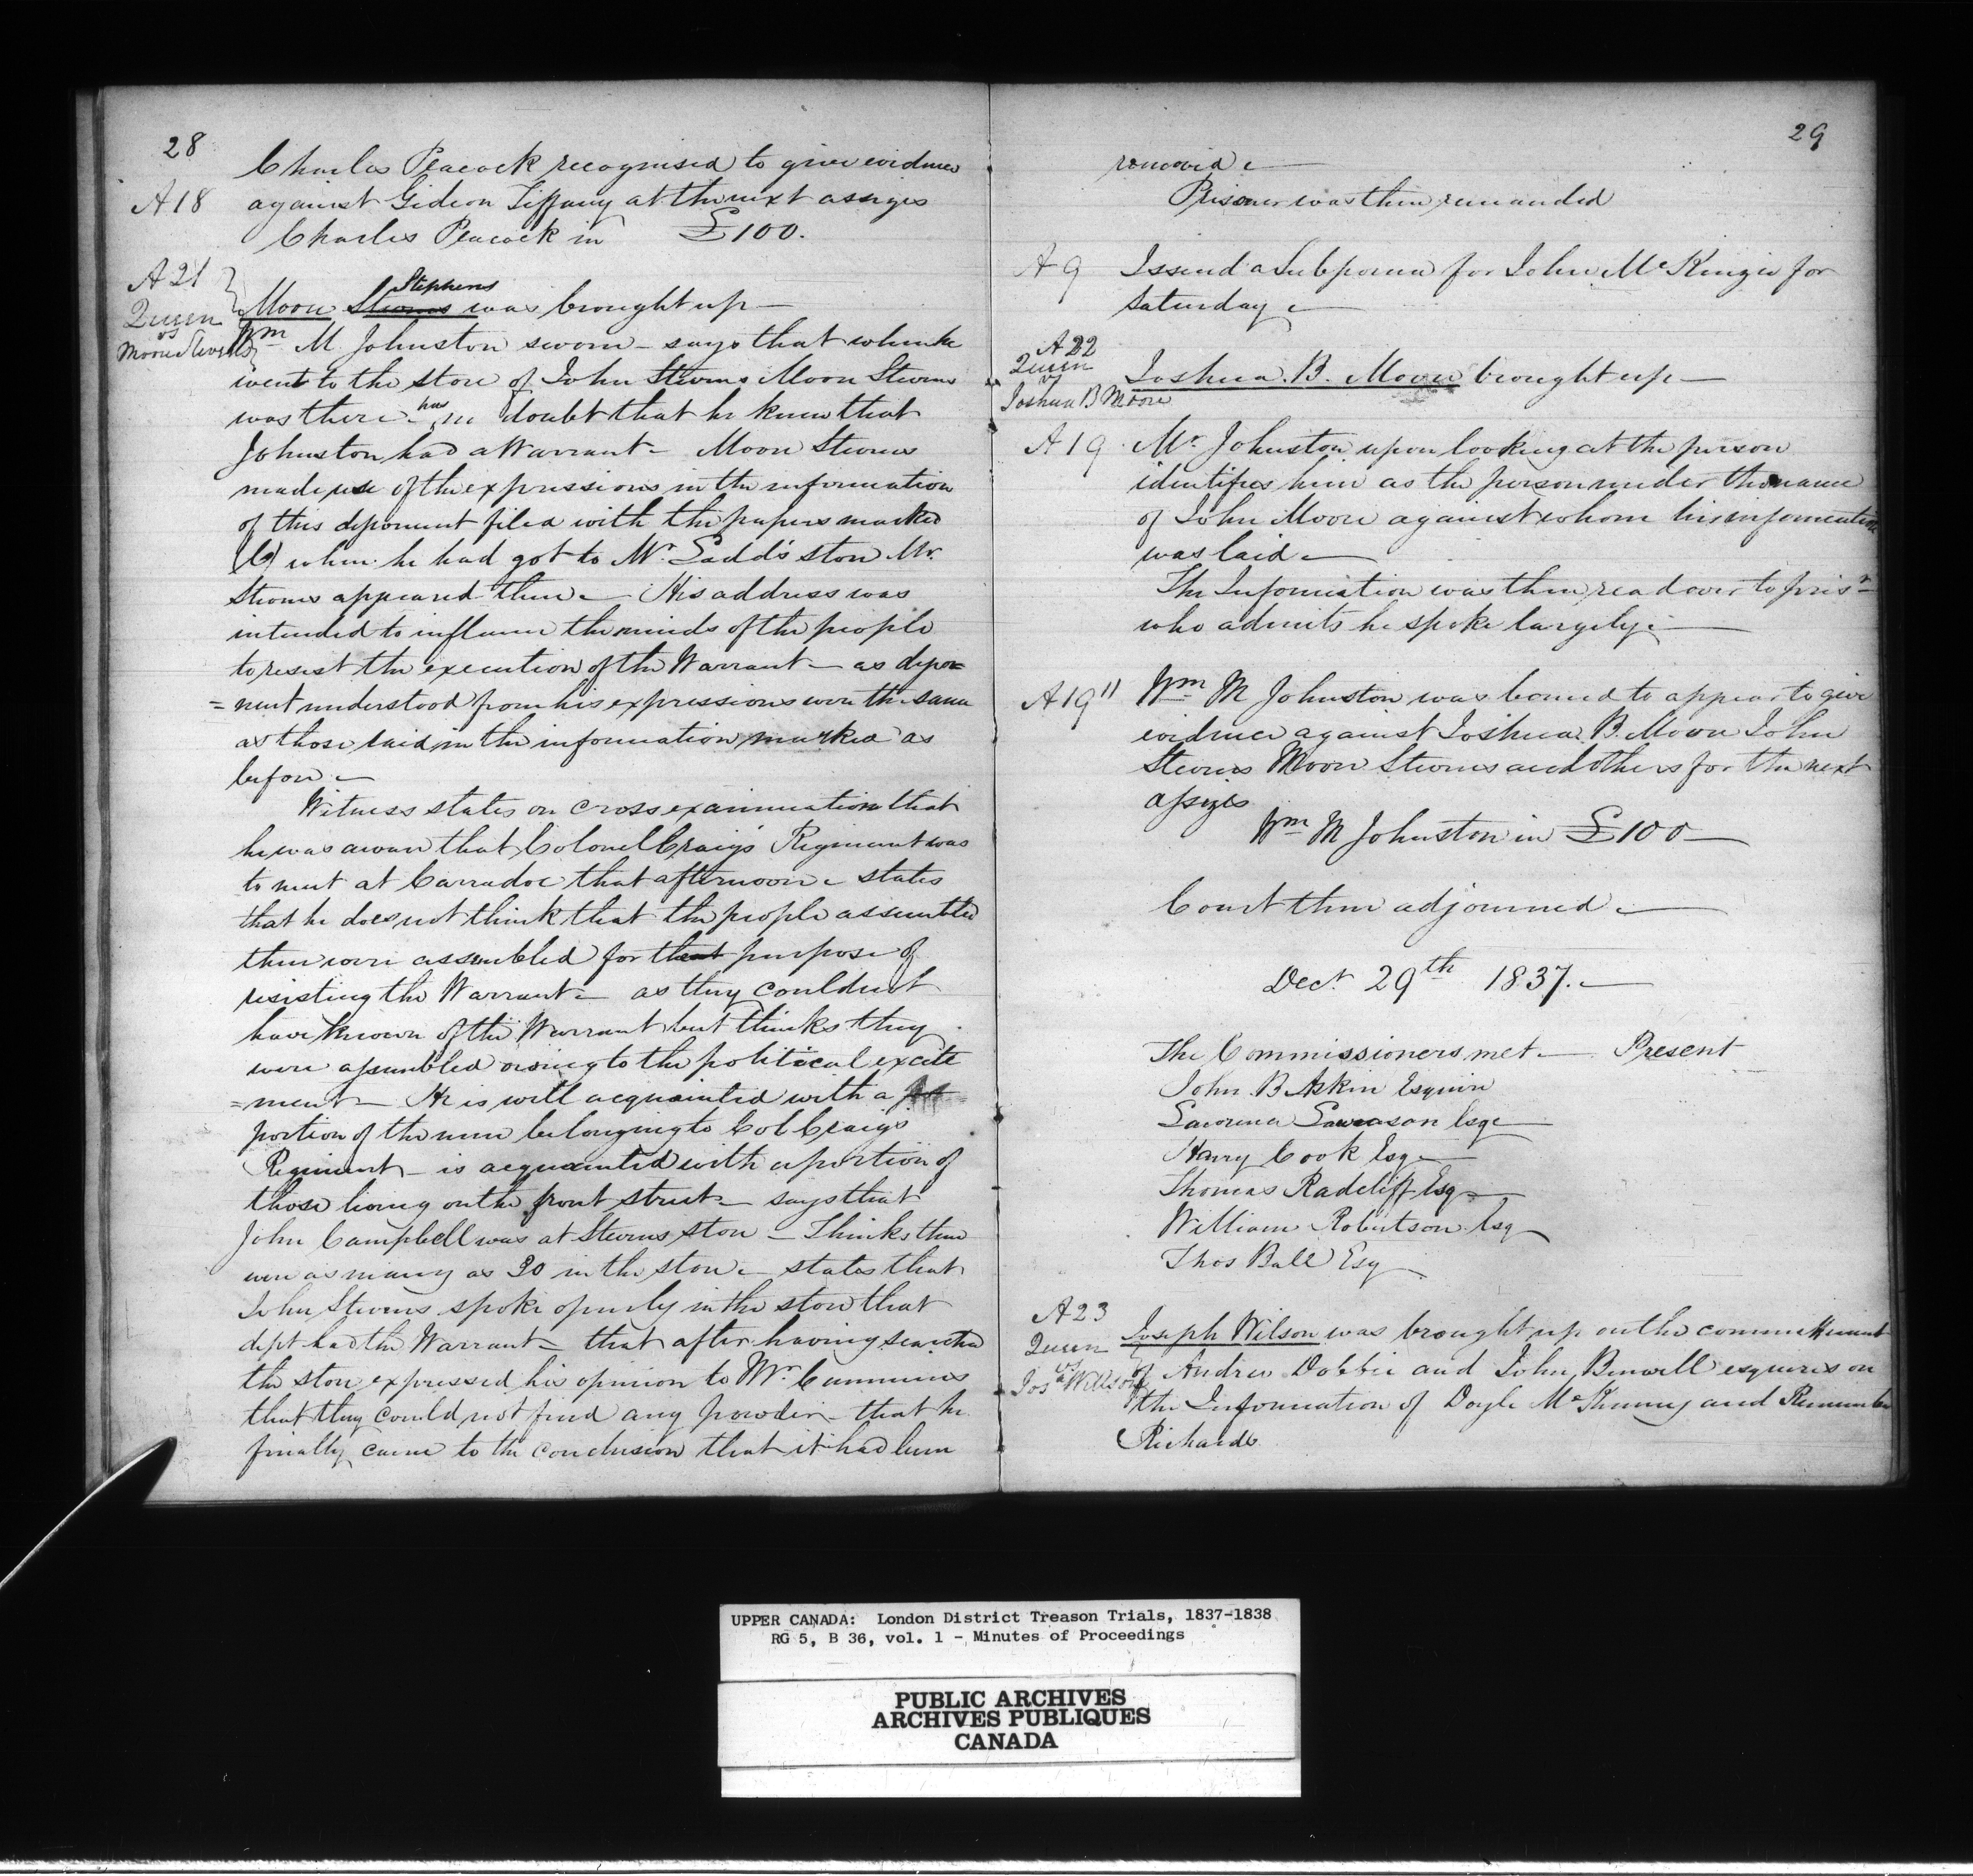 28
Charles Peacock recognised to give evidence
A18 against Gideon Tiffany at the next assizes
Charles Peacock in £100.
A21
Queen
vs
Moore Stevens
Stephens
Moore Stevens was brought up —
Wm M. Johnston sworn – says that when he
went to the store of John Stevens Moore Stevens
was there – has no doubt that he knew that
Johnston had a Warrant – Moore Stevens
made use of the expressions in the information
of this deponent filed with the papers marked
(C) when he had got to Mr. Ladd's store Mr.
Stevens appeared there – His address was
intended to influence the minds of the people
to resist the execution of the Warrant – as depo=
=nent understood from his expressions were the same
as those laid in the information marked as
before –
Witness states on cross examination that
he was aware that Colonel Craig's Regiment was
to meet at Carradoc that afternoon – states
that he does not think that the people assembled
there were assembled for that purpose of
resisting the Warrant – as they could not
have known of the Warrant but thinks they
were assembled owing to the political excite
=ment – He is well acquainted with a
portion of the men belonging to Col Craig's
Regiment – is acquainted with a portion of
those living on the front street – says that
John Campbell was at Stevens store – Thinks there
were as many as 30 in the store – states that
John Stevens spoke openly in the store that
dept had the Warrant – that after having searched
the store expressed his opinion to Mr. Cummins
that they could not find any powder – that he
finally came to the conclusion that it had been
29
removed –
Prisoner was then remanded
A9 Issued a Subpoena for John McKinzie for
Saturday –
A22
Queen
vs
Joshua B Moore
Joshua. B. Moore brought up –
A19 Mr. Johnston upon looking at the person
identifies him as the person under the name
of John Moore against whom his information
was laid –
The Information was then read over to prisr
who admits he spoke largely –
A19" Wm M Johnston was bound to appear to give
evidence against Joshua. B. Moore John
Stevens Moore Stevens and others for the next
assizes
Wm M Johnston in £100 –
Court then adjourned –
Dec. 29th 1837. –
The Commissioners met – Present
John. B Askin Esquire
Lawrence Lawrason Esqe
Harry Cook Esqe
Thomas Radcliff Esq
William Robertson Esq
Thos Ball Esq
A23
Queen
vs
Josh Willson
Joseph Wilson was brought up on the committment
of Andrew Dobbie and John Burwell esquires on
the Information of Doyle McKenny and Remember
Richards
UPPER CANADA: London District Treason Trials, 1837-1838
RG 5, B 36, vol. 1 - Minutes of Proceedings
PUBLIC ARCHIVES
ARCHIVES PUBLIQUES
CANADA